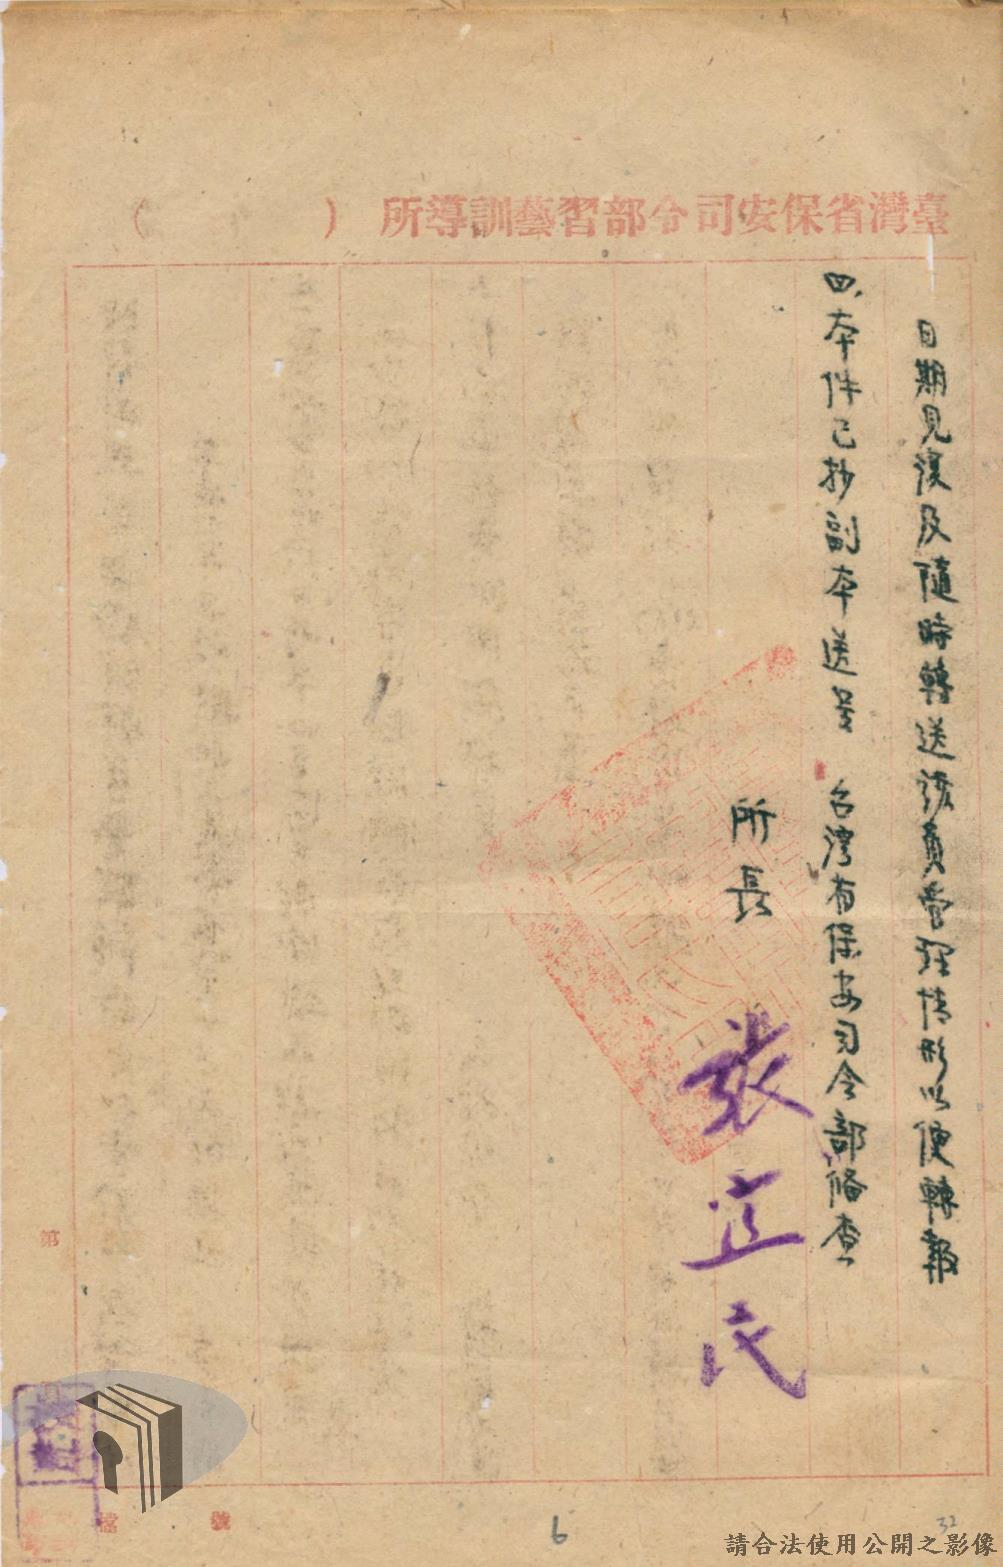 臺灣省保安司令部習藝訓導所（　　　）
日期見復及隨時轉送該員管理情形以便轉報
四、本件已抄副本送呈　台灣省保安司令部俻查
所長
張正民
第
檔
號
6
32
請合法使用公開之影像